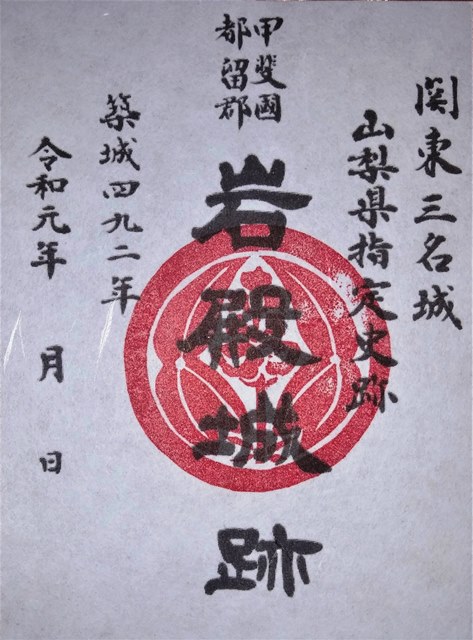 関東三名城
山梨県指定史跡
甲斐國
都留郡
岩殿城跡
築城四九二年
令和元年 月 日